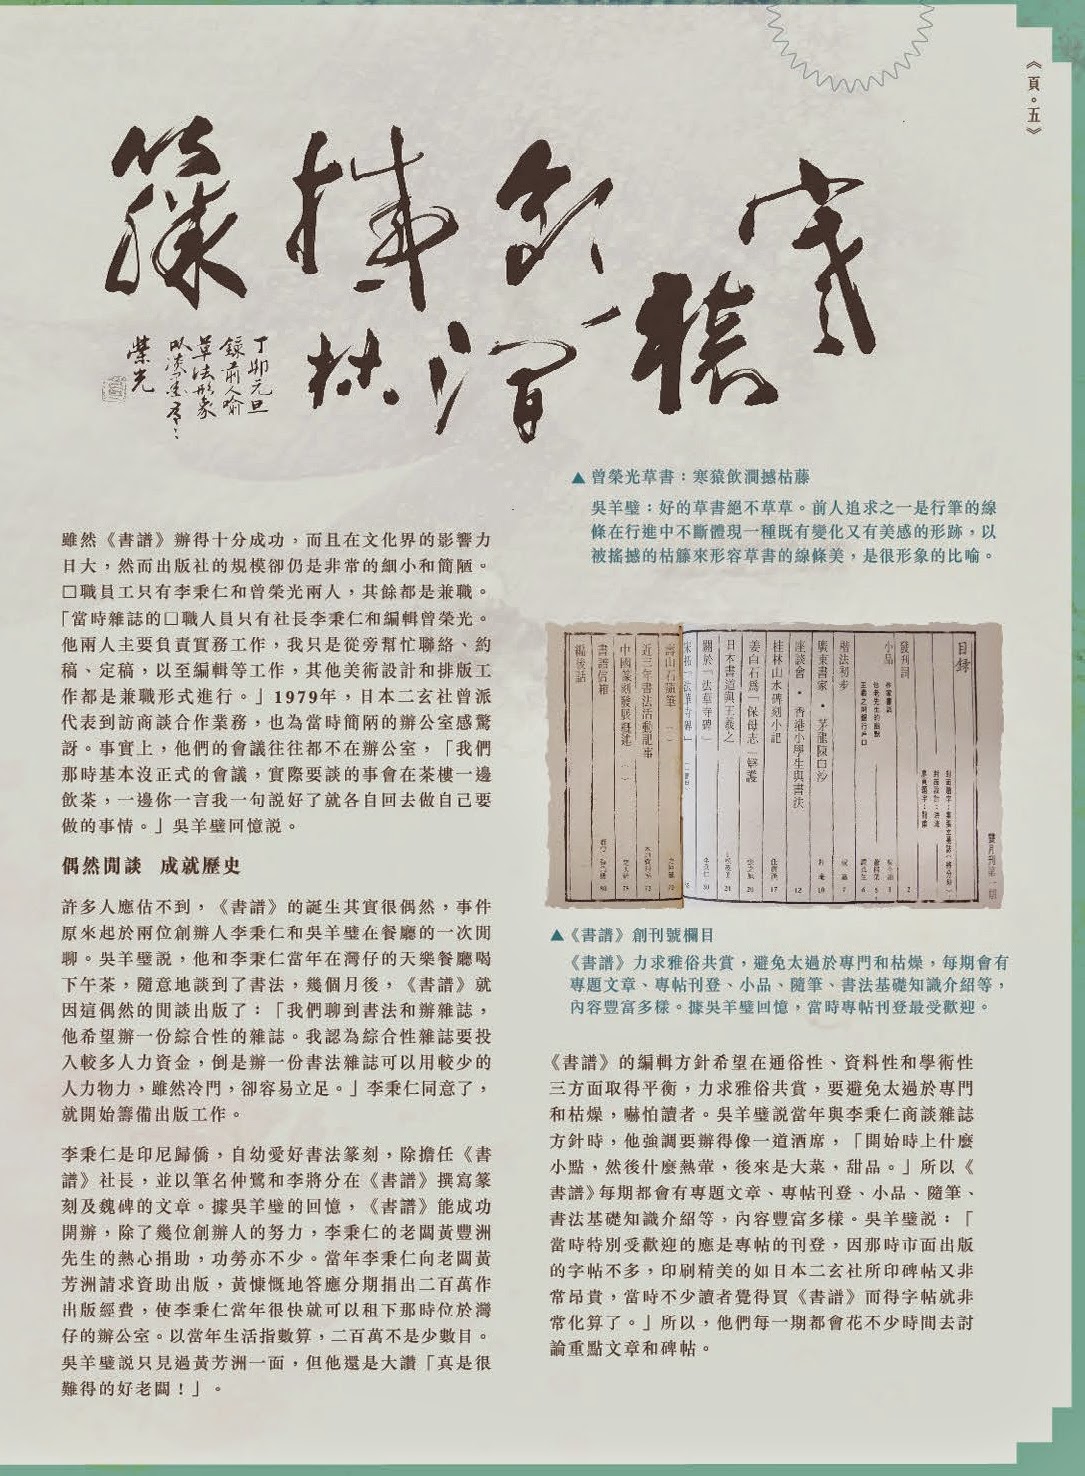 《頁。五》
寒猿
飲澗
撼枯
籐
丁卯元旦
錄前人喻
草法形象
榮光
▲ 曾榮光草書：寒猿飲澗撼枯藤
吳羊璧：好的草書絕不草草。前人追求之一是行筆的線
條在行進中不斷體現一種既有變化又有美感的形跡，以
被搖撼的枯籐來形容草書的線條美，是很形象的比喻。
雖然《書譜》辦得十分成功，而且在文化界的影響力
日大，然而出版社的規模卻仍是非常的細小和簡陋。
□職員工只有李秉仁和曾榮光兩人，其餘都是兼職。
「當時雜誌的□職人員只有社長李秉仁和編輯曾榮光。
他兩人主要負責實務工作，我只是從旁幫忙聯絡、約
稿、定稿，以至編輯等工作，其他美術設計和排版工
作都是兼職形式進行。」1979年，日本二玄社曾派
代表到訪商談合作業務，也為當時簡陋的辦公室感驚
訝。事實上，他們的會議往往都不在辦公室，「我們
那時基本沒正式的會議，實際要談的事會在茶樓一邊
飲茶，一邊你一言我一句説好了就各自回去做自己要
做的事情。」吳羊璧回憶説。
偶然閒談 成就歷史
許多人應估不到，《書譜》的誕生其實很偶然，事件
原來起於兩位創辦人李秉仁和吳羊璧在餐廳的一次閒
聊。吳羊璧説，他和李秉仁當年在灣仔的天樂餐廳喝
下午茶，隨意地談到了書法，幾個月後，《書譜》就
因這偶然的閒談出版了：「我們聊到書法和辦雜誌，
他希望辦一份綜合性的雜誌。我認為綜合性雜誌要投
入較多人力資金，倒是辦一份書法雜誌可以用較少的
人力物力，雖然冷門，卻容易立足。」李秉仁同意了，
就開始籌備出版工作。
李秉仁是印尼歸僑，自幼愛好書法篆刻，除擔任《書
譜》社長，並以筆名仲鷺和李將分在《書譜》撰寫篆
刻及魏碑的文章。據吳羊璧的回憶，《書譜》能成功
開辦，除了幾位創辦人的努力，李秉仁的老闆黃豐洲
先生的熱心捐助，功勞亦不少。當年李秉仁向老闆黃
芳洲請求資助出版，黃慷慨地答應分期捐出二百萬作
出版經費，使李秉仁當年很快就可以租下那時位於灣
仔的辦公室。以當年生活指數算，二百萬不是少數目。
吳羊璧説只見過黃芳洲一面，但他還是大讚「真是很
難得的好老闆！」。
雙月刊第一期
目錄
發刊詞 2
小品
楷法初步 7
廣東書家・茅龍陳白沙 10
座談會・香港小學生與書法 12
桂林山水碑刻小記 17
姜白石爲「保母志」辯護 20
日本書道與王羲之 24
關於「法華寺碑」 30
壽山石隨筆（一） 70
近三年書法活動記事 72
中國篆刻發展概述（一） 75
書譜信箱 80
編後話
▲《書譜》創刊號欄目
《書譜》力求雅俗共賞，避免太過於專門和枯燥，每期會有
專題文章、專帖刊登、小品、隨筆、書法基礎知識介紹等，
內容豐富多樣。據吳羊璧回憶，當時專帖刊登最受歡迎。
《書譜》的編輯方針希望在通俗性、資料性和學術性
三方面取得平衡，力求雅俗共賞，要避免太過於專門
和枯燥，嚇怕讀者。吳羊璧説當年與李秉仁商談雜誌
方針時，他強調要辦得像一道酒席，「開始時上什麼
小點，然後什麼熱葷，後來是大菜，甜品。」所以《
書譜》每期都會有專題文章、專帖刊登、小品、隨筆、
書法基礎知識介紹等，內容豐富多樣。吳羊璧説：「
當時特別受歡迎的應是專帖的刊登，因那時市面出版
的字帖不多，印刷精美的如日本二玄社所印碑帖又非
常昂貴，當時不少讀者覺得買《書譜》而得字帖就非
常化算了。」所以，他們每一期都會花不少時間去討
論重點文章和碑帖。